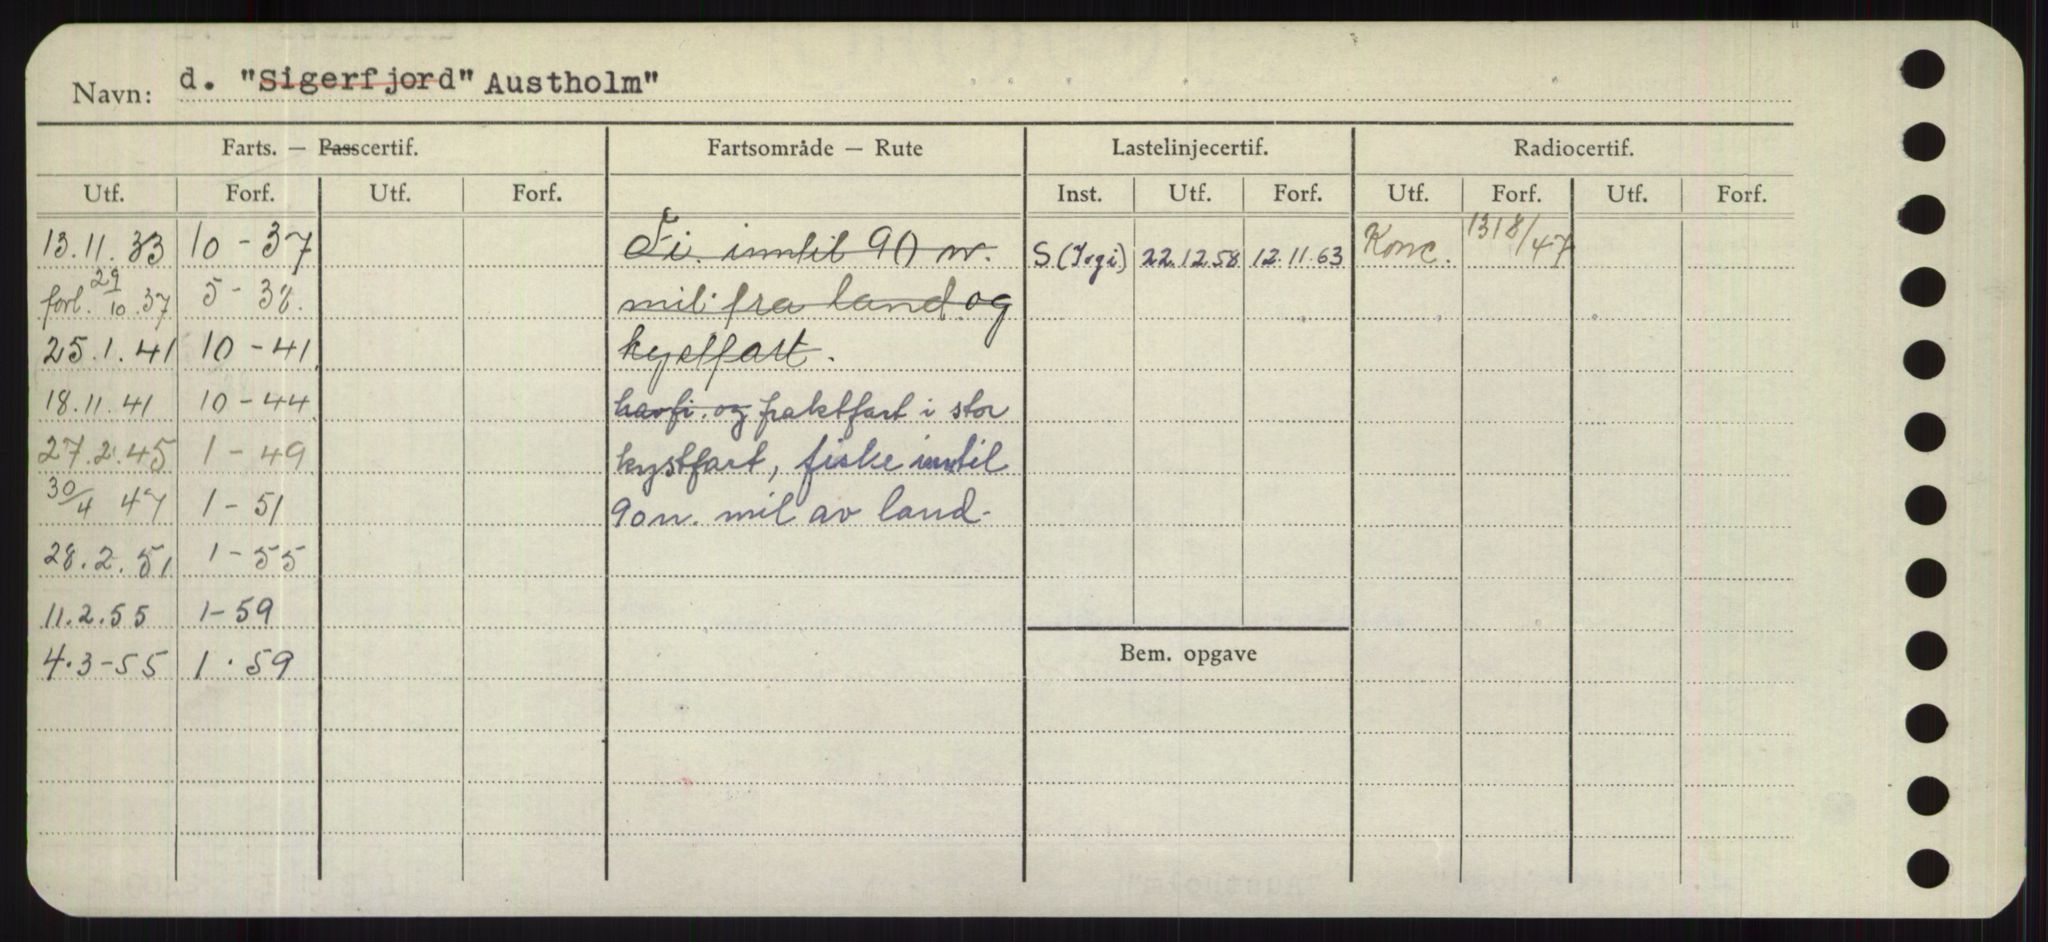 Navn: d. "Sigerfjord" Austholm"
Farts. — Passcertif. Fartsområde — Rute Lastelinjecertif. Radiocertif.
Utf. Forf. Utf. Forf. Inst. Utf. Forf. Utf. Forf. Utf. Forf.
13.11.33 10-37 Fi. inntil 90 n. S 22.12.58 12.11.63 Konc. 1318/47
forl. 29/10.37 5-38. mil fra land og
25.1.41 10-41 kystfart.
18.11.41 10-44 havfi. og fraktfart i stor
27.2.45 1-49 kystfart, fiske inntil
30/4 47 1-51 90 n. mil av land-
28.2.51 1-55
11.2.55 1-59
4.3-55 1.59 Bem. opgave